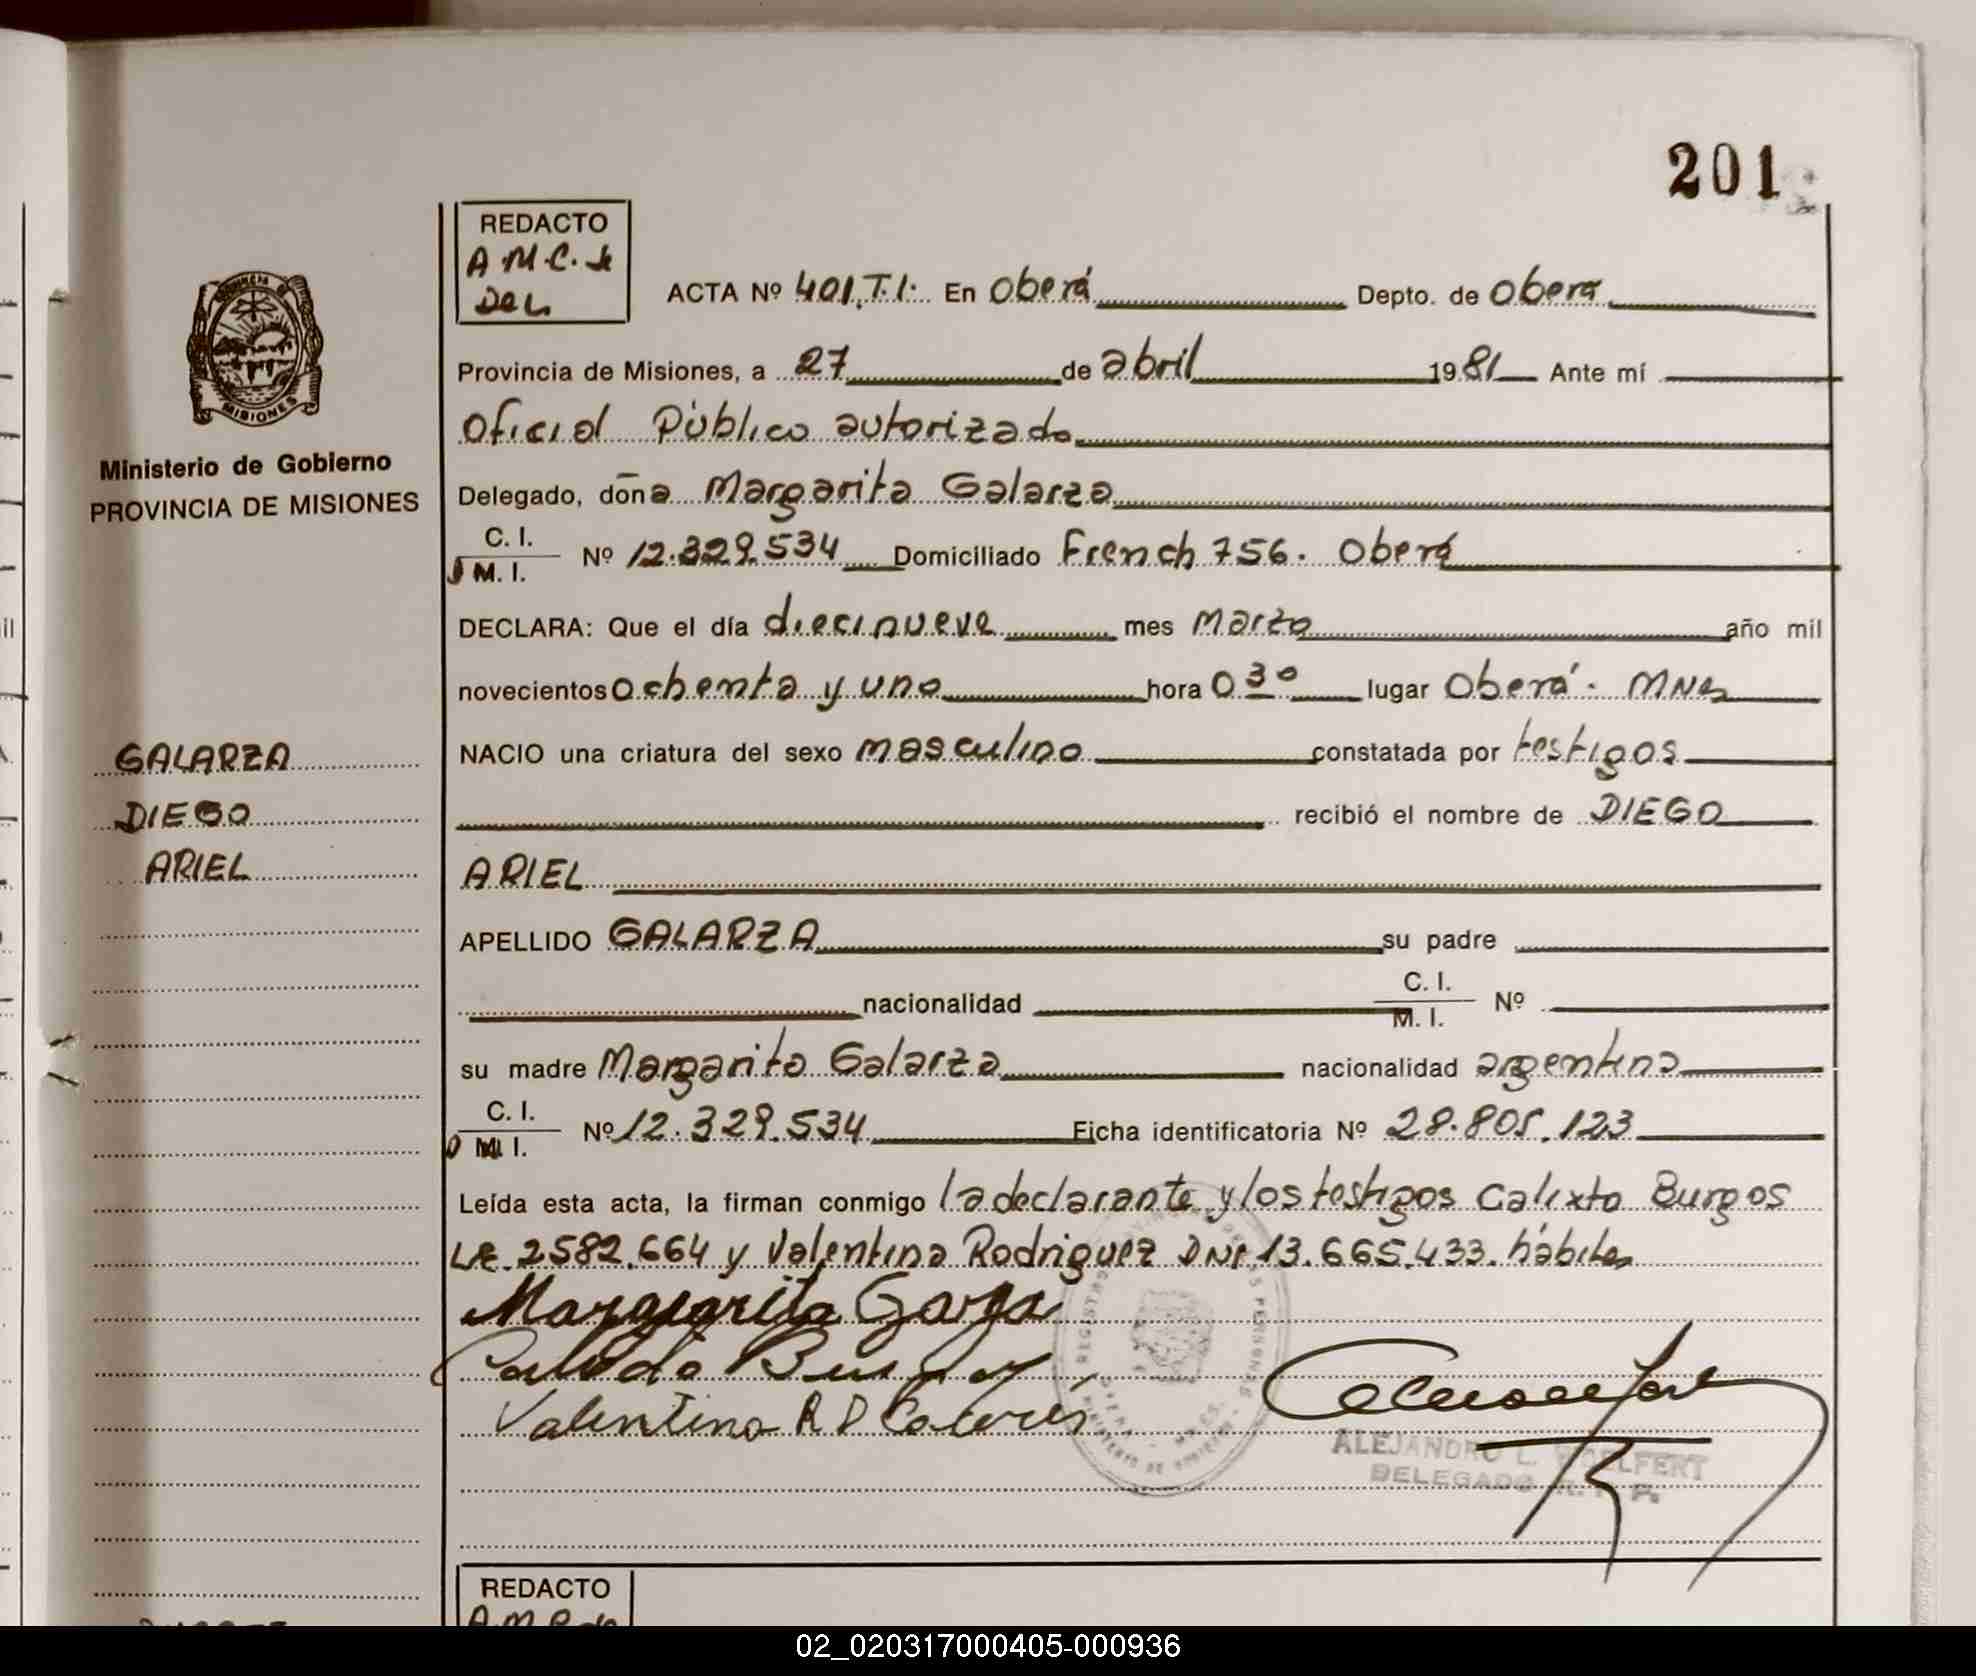 201
REDACTO
A.M.C. de
Del
ACTA Nº 401.T.I. En Oberá Depto. de Oberá
Provincia de Misiones, a 27 de abril 1981 Ante mí
Oficial Público autorizado
Delegado, doña Margarita Galarza
C. I.
M. I.
Nº 12.329.534 Domiciliado French 756. Oberá
DECLARA: Que el día diecinueve mes marzo año mil
novecientos ochenta y uno hora 0 30 lugar Oberá. Mnes
NACIO una criatura del sexo masculino constatada por testigos
recibió el nombre de DIEGO
ARIEL
APELLIDO GALARZA su padre
nacionalidad C. I. M. I. Nº
su madre Margarita Galarza nacionalidad argentina
C. I.
M. I.
Nº 12.329.534 Ficha identificatoria Nº 28.805.123
Leída esta acta, la firman conmigo la declarante y los testigos Calixto Burgos
LE. 2582.664 y Valentina Rodriguez DNI. 13.665.433. hábiles
Margarita
Valentina R D
ALEJANDRO L. WOELFERT
DELEGADO R. P. P.
MISIONES
Ministerio de Gobierno
PROVINCIA DE MISIONES
GALARZA
DIEGO
ARIEL
REDACTO
02_020317000405-000936